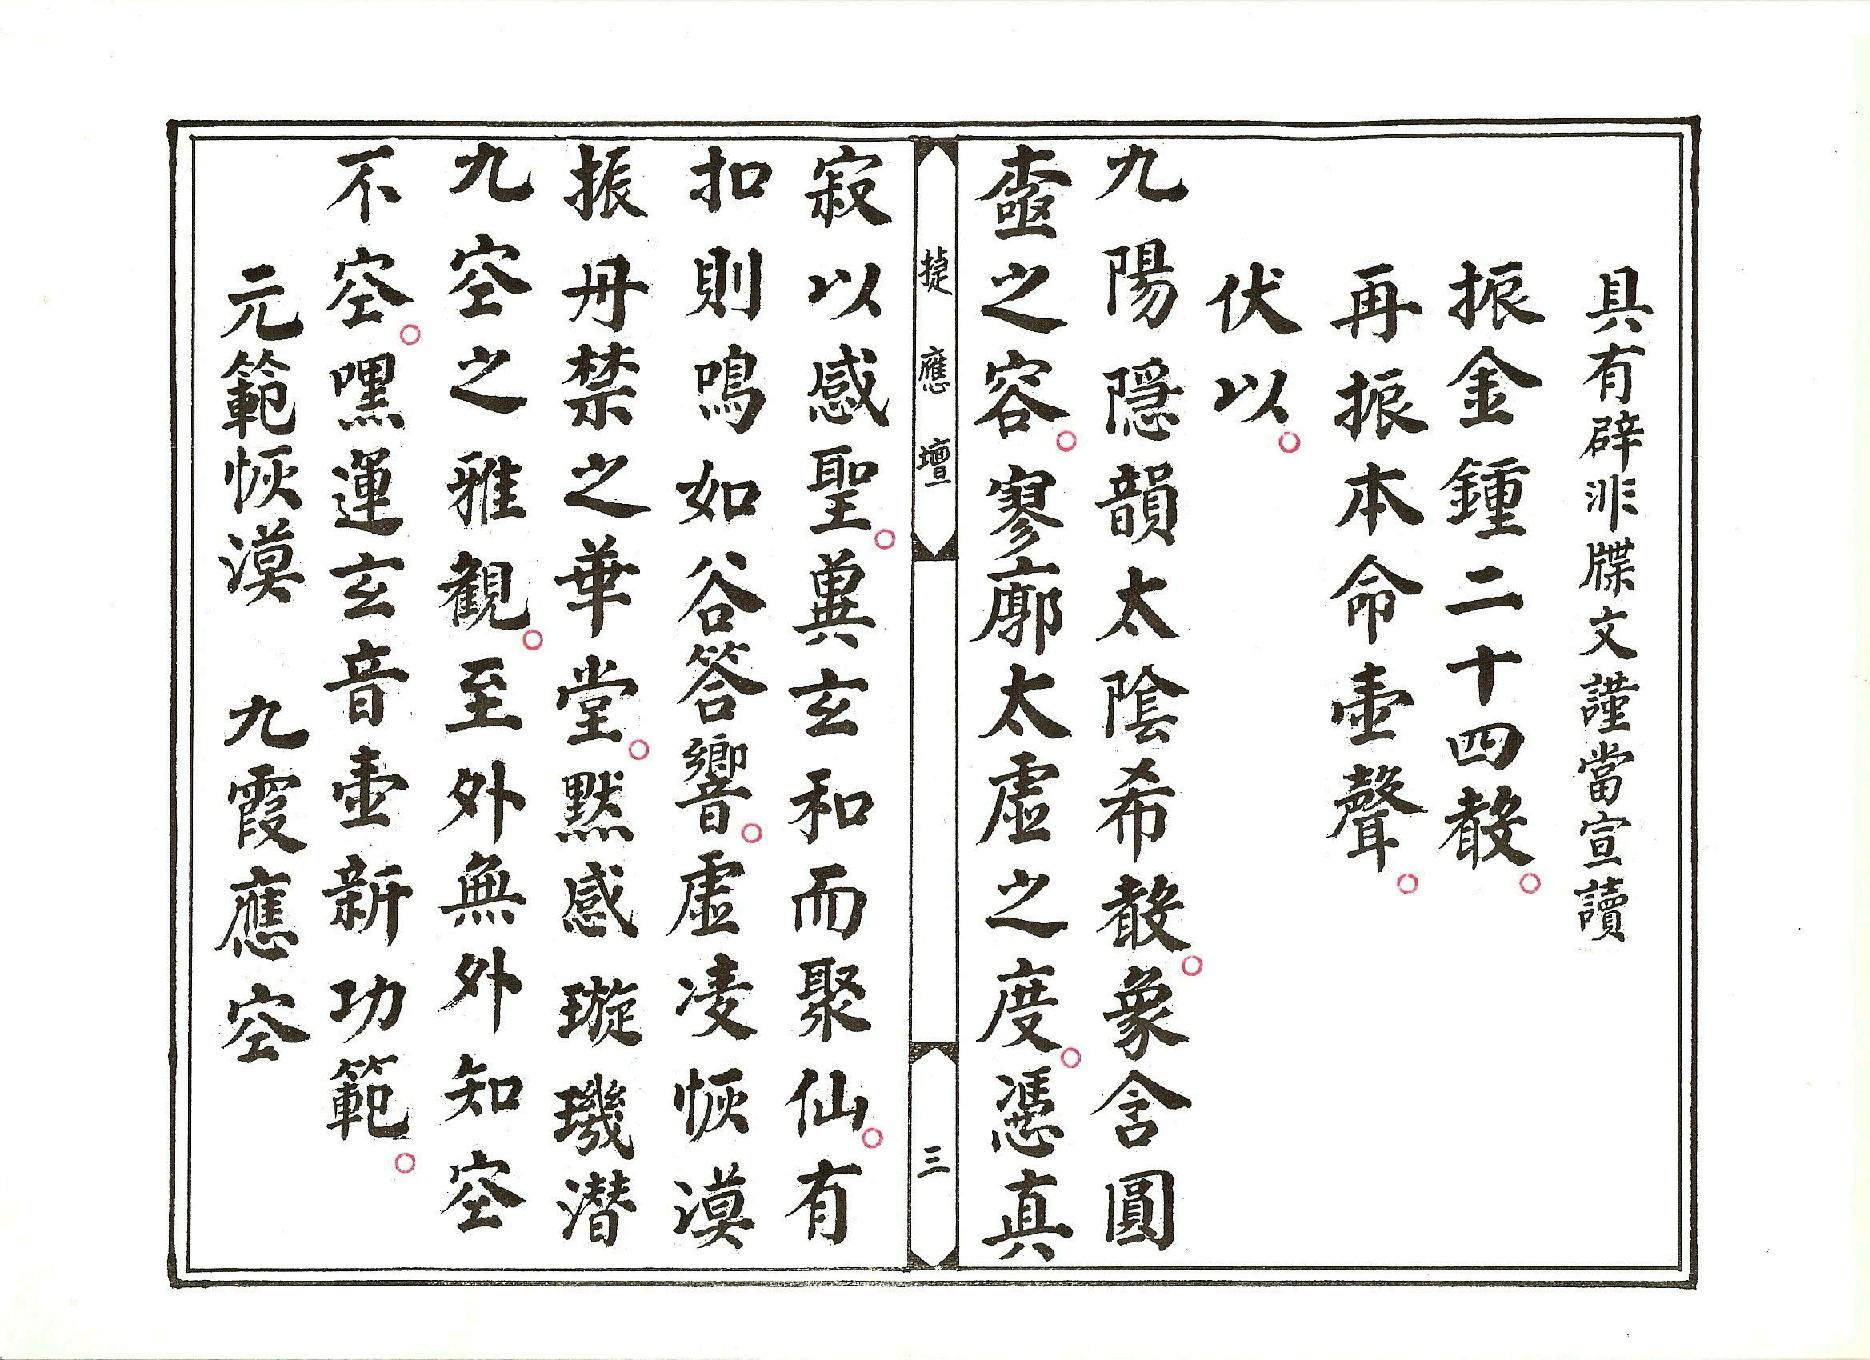 具有辟非牒文謹當宣讀
振金鍾二十四殸。
再振本命壷聲。
伏以。
九陽隱韻太陰希殸。象含圓
之容。寥廓太虛之度。憑真
捷應壇
三
寂以感聖。冀玄和而聚仙。有
扣則鳴如谷答響。虛凌恢漠
振丹禁之華堂。黙感璇璣潜
九空之雅觀。至外無外知空
不空。嘿運玄音壷新功範。
元範恢漠　九霞應空